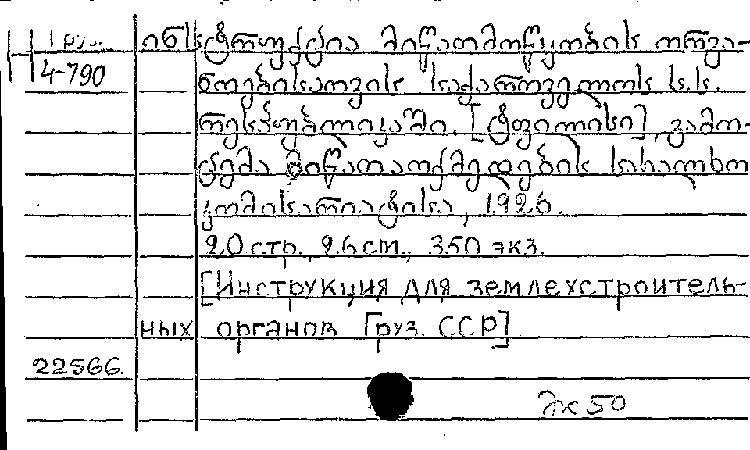 Груз. ინსტრუქცია მიწათმოწყობის ორგა-
4-790 ნოებისათვის საქართველოს ს.ს.
რესპუბლიკაში. [ტფილისი], გამო-
ცემა მიწათმოქმედების სახალხო
კომისარიატისა, 1926.
20 стр., 26 cm., 350 экз.
[Инструкция для землеустроитель-
ных органов Груз. ССР]
22566.
Эк 50